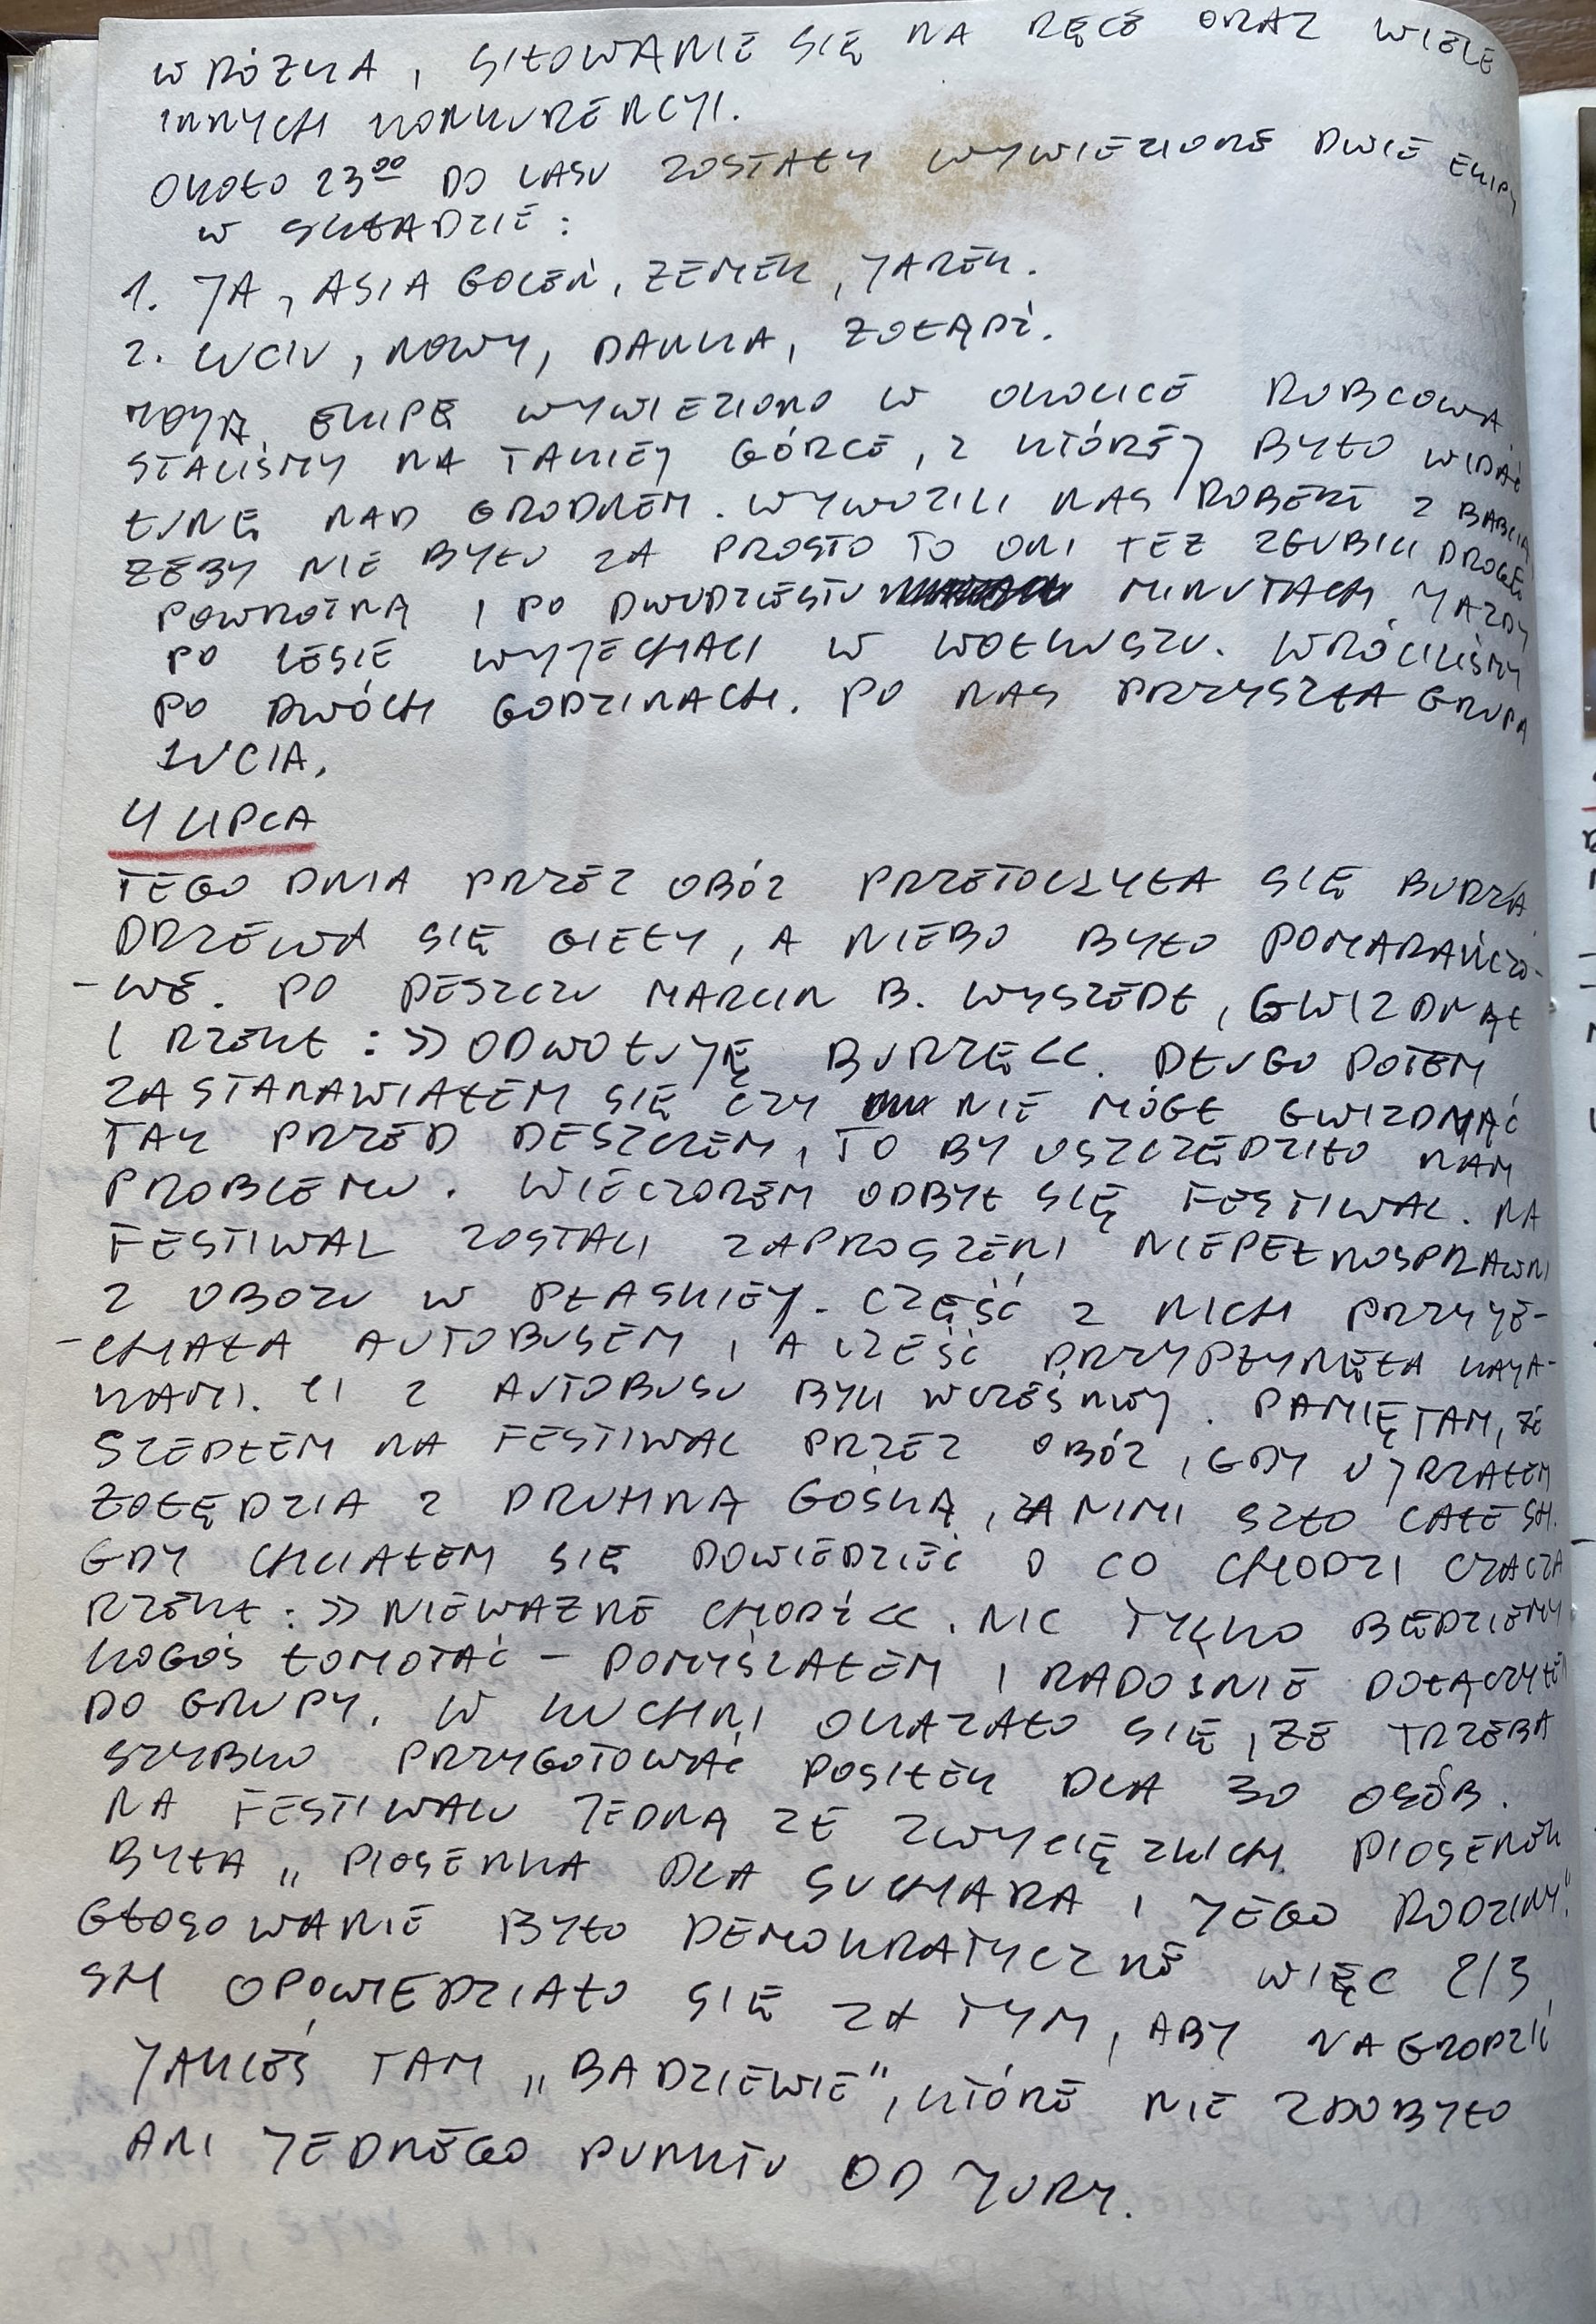 WRÓŻKA, SIŁOWANIE SIĘ NA RĘCE ORAZ WIELE
INNYCH KONKURENCJI.
OKOŁO 23⁰⁰ DO LASU ZOSTAŁY WYWIEZIONE DWIE EKIPY
W SKŁADZIE:
1. JA, ASIA GOLEŃ, ZEMEK, JAREK.
2. LUCIU, NOWY, DANKA, ŻOŁĄDŹ.
MOJĄ EKIPĘ WYWIEZIONO W OKOLICE RUBCOWA
STALIŚMY NA TAKIEJ GÓRCE, Z KTÓREJ BYŁO WIDAĆ
ŁUNĘ NAD GRODNEM. WYWOZILI NAS ROBERT Z BABCIĄ
ŻEBY NIE BYŁO ZA PROSTO TO ONI TEŻ ZGUBILI DROGĘ
POWROTNĄ I PO DWUDZIESTU MINUTACH JAZDY
PO LESIE WYJECHALI W WOŁKUSZU. WRÓCILIŚMY
PO DWÓCH GODZINACH. PO NAS PRZYSZŁA GRUPA
LUCIA.
4 LIPCA
TEGO DNIA PRZEZ OBÓZ PRZETOCZYŁA SIĘ BURZA.
DRZEWA SIĘ GIEŁY, A NIEBO BYŁO POMARAŃCZO-
-WE. PO DESZCZU MARCIN B. WYSZEDŁ, GWIZDNĄŁ
I RZEKŁ: >> ODWOŁUJĘ BURZĘ<<. DŁUGO POTEM
ZASTANAWIAŁEM SIĘ CZY NIE MÓGŁ GWIZDNĄĆ
TAK PRZED DESZCZEM, TO BY USZCZĘDZIŁO NAM
PROBLEMU. WIECZOREM ODBYŁ SIĘ FESTIWAL. NA
FESTIWAL ZOSTALI ZAPROSZENI NIEPEŁNOSPRAWNI
Z OBOZU W PŁASKIEJ. CZĘŚĆ Z NICH PRZYJE-
-CHAŁA AUTOBUSEM, A CZĘŚĆ PRZYPŁYNĘŁA KAJA-
KAMI. CI Z AUTOBUSU BYLI WCZEŚNIEJ. PAMIĘTAM, ŻE
SZEDŁEM NA FESTIWAL PRZEZ OBÓZ, GDY UJRZAŁEM
ŻOŁĘDZIA Z DRUHNĄ GOŚKĄ, ZA NIMI SZŁO CAŁE SH.
GDY CHCIAŁEM SIĘ DOWIEDZIEĆ O CO CHODZI CZACZA
RZEKŁ: >> NIEWAŻNE CHODŹ<<. NIC TYLKO BĘDZIEMY
KOGOŚ ŁOMOTAĆ - POMYŚLAŁEM I RADOŚNIE DOŁĄCZYŁEM
DO GRUPY. W KUCHNI OKAZAŁO SIĘ, ŻE TRZEBA
SZYBKO PRZYGOTOWAĆ POSIŁEK DLA 30 OSÓB.
NA FESTIWALU JEDNĄ ZE ZWYCIĘZKICH PIOSENEK
BYŁA „PIOSENKA DLA SUCHARA I JEGO RODZINY."
GŁOSOWANIE BYŁO DEMOKRATYCZNE WIĘC 2/3
SH OPOWIEDZIAŁO SIĘ ZA TYM, ABY NAGRODZIĆ
JAKIEŚ TAM „BADZIEWIE", KTÓRE NIE ZDOBYŁO
ANI JEDNEGO PUNKTU OD JURY.